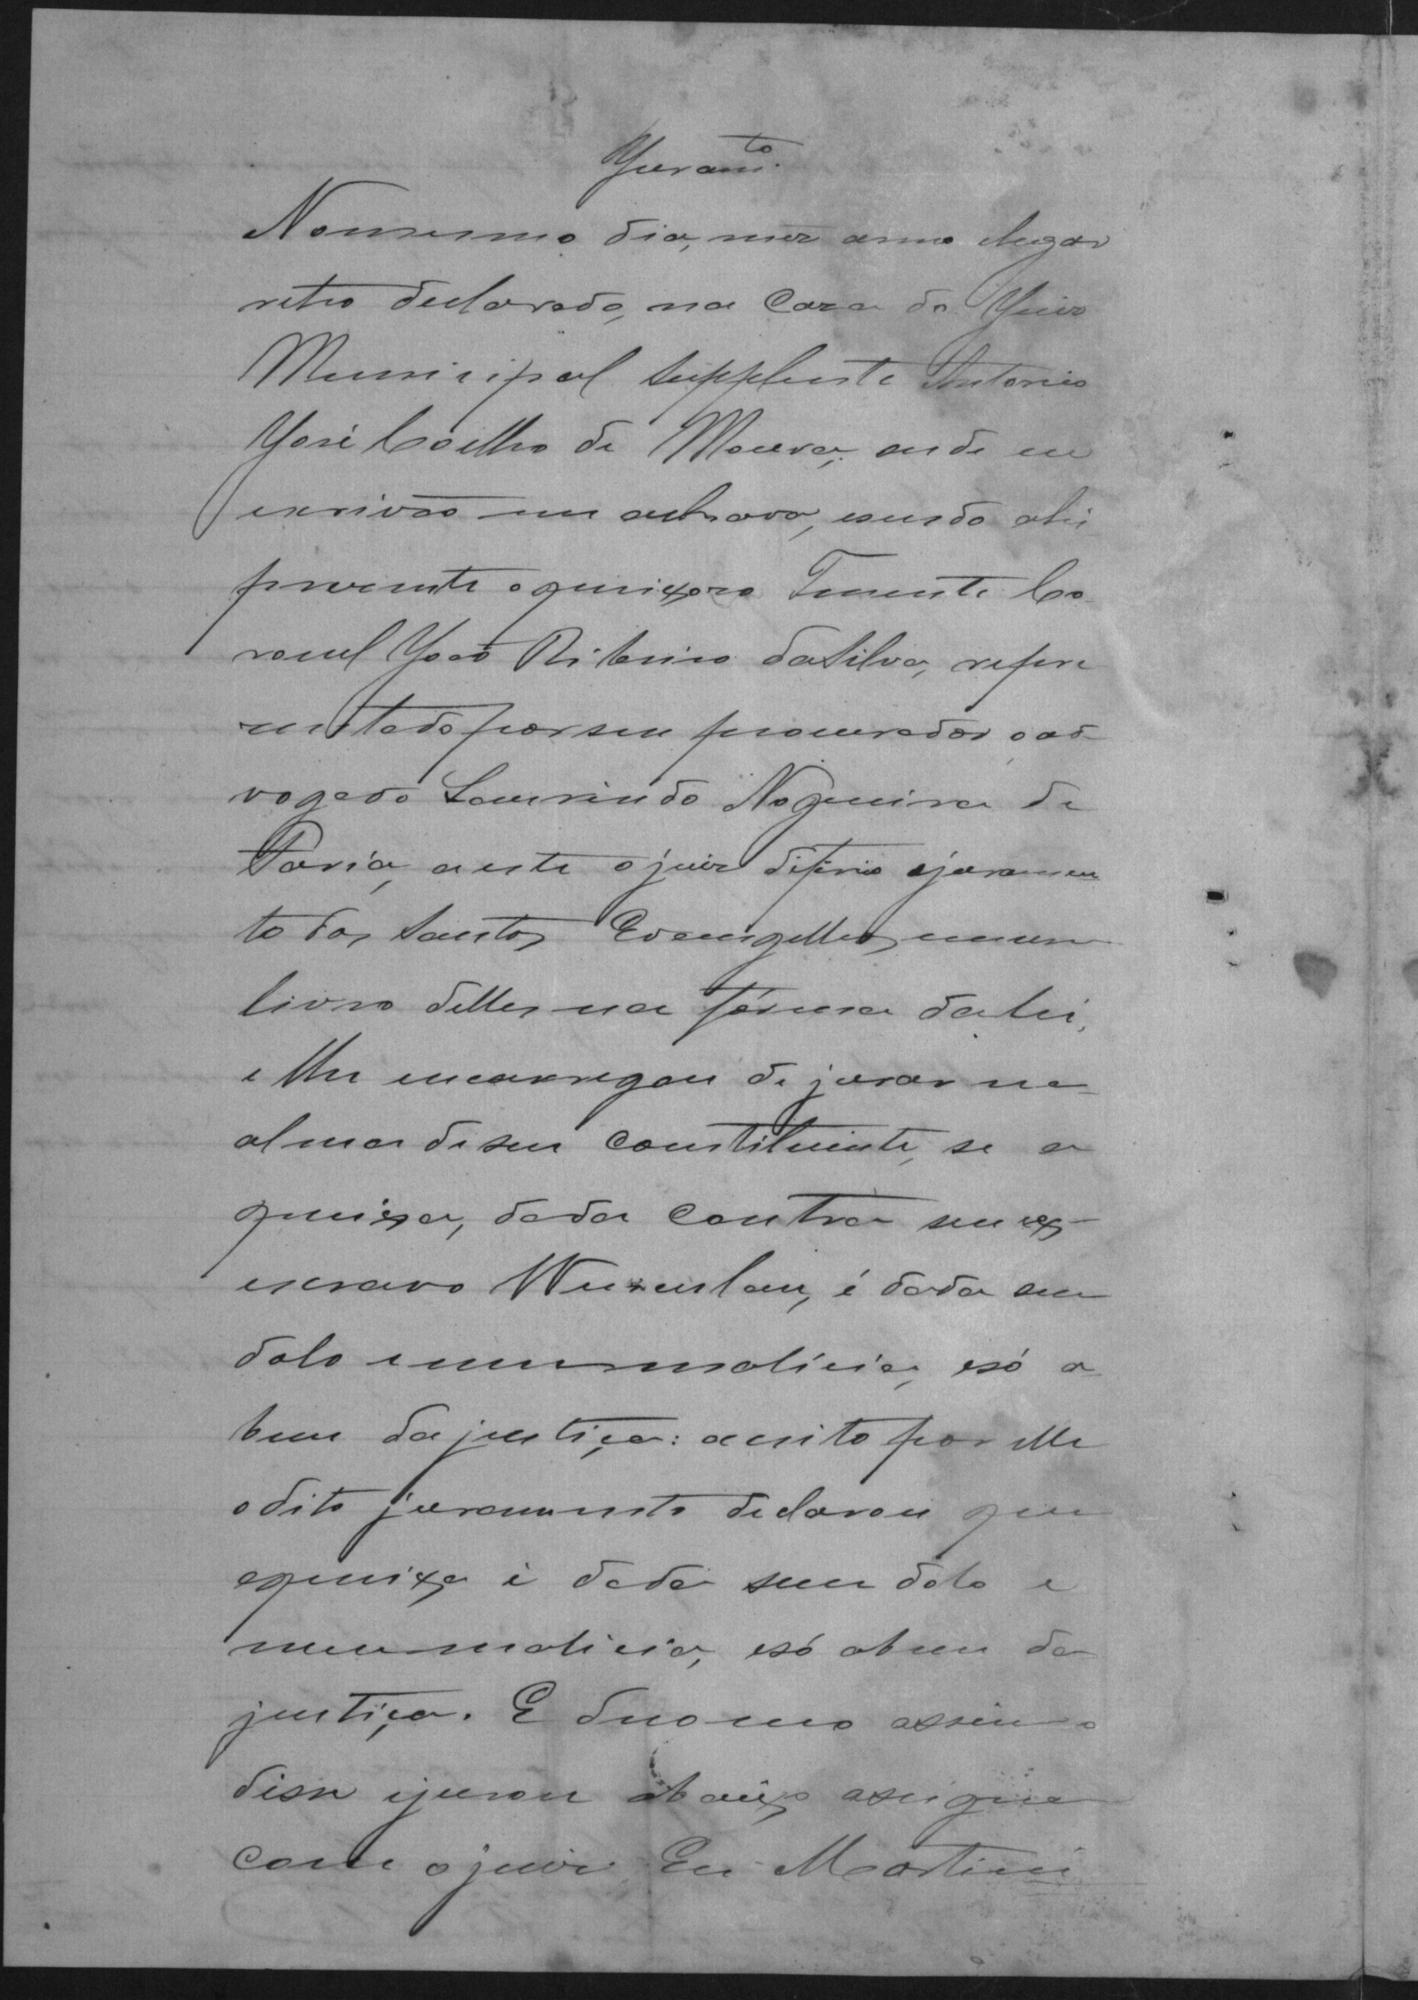 Juram.to
No mesmo dia, mez anno elugar
retro declarado, na Caza do Juiz
Municipal Supplente Antonio
José Coelho de Moura; onde eu
escrivão me achava, esendo ahi
prezente o queixozo Tenente Co-
ronel João Ribeiro da Silva, repre
zentado por seu procurador, o ad-
vogado Laurindo Nogueira de
Faria, a este o juiz difirio ojuramen
to dos Santos Evangelhos, em um
livro delles na fórma da lei,
e lhe encarregou de jurar na
alma de seu Constituinte, se a
queixa, dada contra seu ex-
escravo Wenceslau, é dada sem
dolo e nem malícia, esó a
bem da justiça: aceito por elle
odito juramento declarou que
aqueixa é dada sem dolo e
nem malicia, esó abem da
justiça. E de como assim o
disse ejurou abaixo assigna
com o juiz. Eu Martini